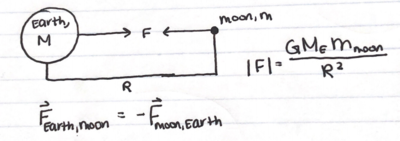 Earth, M
F
moon, m
R
|F| = GM_E m_moon / R²
F⃗_Earth, moon = -F⃗_moon, Earth